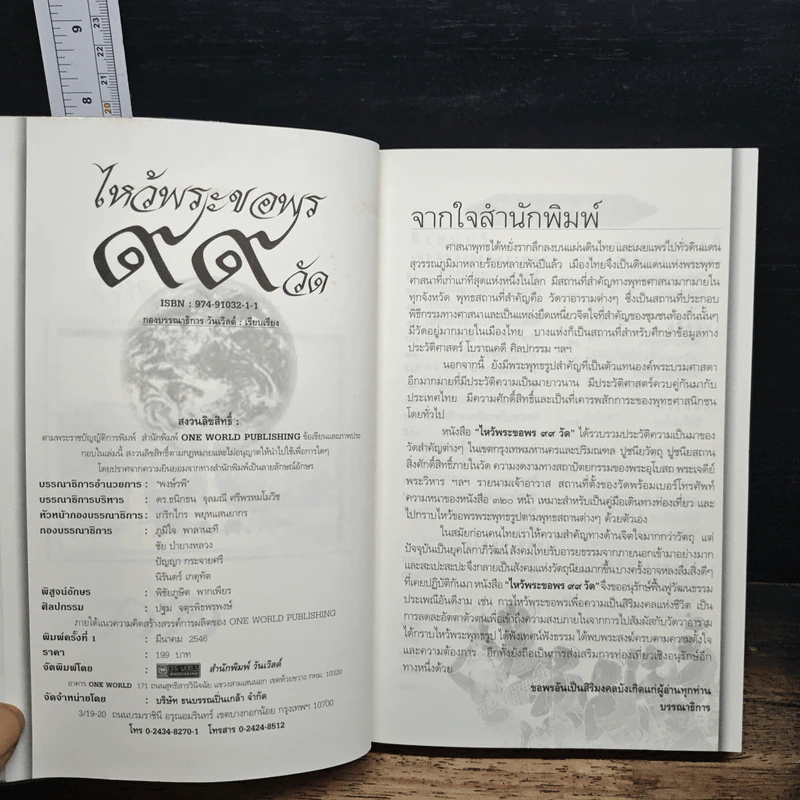 9
8
23
22
21
20
ไหว้พระขอพร
๙๙ วัด
ISBN : 974-91032-1-1
กองบรรณาธิการ วันเวิลด์ : เรียบเรียง
สงวนลิขสิทธิ์ :
ตามพระราชบัญญัติการพิมพ์ สำนักพิมพ์ ONE WORLD PUBLISHING ข้อเขียนและภาพประ
กอบในเล่มนี้ สงวนลิขสิทธิ์ตามกฎหมายและไม่อนุญาตให้นำไปใช้เพื่อการใดๆ
โดยปราศจากความยินยอมจากทางสำนักพิมพ์เป็นลายลักษณ์อักษร
บรรณาธิการอำนวยการ : "พงษ์รพี"
บรรณาธิการบริหาร : ดร.ชนิกชน จุลมณี ศรีพรหมโมวิช
หัวหน้ากองบรรณาธิการ : เกริกไกร พยุหแสนยากร
กองบรรณาธิการ : ภูมิใจ พาลานะที
ชัย ป่ายางหลวง
ปัญญา กระจายศรี
นิรันดร์ เกตุทัต
พิสูจน์อักษร : พิชัยภูษิต พากเพียร
ศิลปกรรม : ปฐม จตุรพิธพรพงษ์
ภายใต้แนวความคิดสร้างสรรค์การผลิตของ ONE WORLD PUBLISHING
พิมพ์ครั้งที่ 1 : มีนาคม 2546
ราคา : 199 บาท
จัดพิมพ์โดย : สำนักพิมพ์ วันเวิลด์
อาคาร ONE WORLD 171 ถนนสุทธิสารวินิจฉัย แขวงสามเสนนอก เขตห้วยขวาง กทม. 10320
จัดจำหน่ายโดย : บริษัท ธนบรรณปิ่นเกล้า จำกัด
3/19-20 ถนนบรมราชินี อรุณอมรินทร์ เขตบางกอกน้อย กรุงเทพฯ 10700
โทร 0-2434-8270-1 โทรสาร 0-2424-8512
จากใจสำนักพิมพ์
ศาสนาพุทธได้หยั่งรากลึกลงบนแผ่นดินไทย และเผยแพร่ไปทั่วดินแดน
สุวรรณภูมิมาหลายร้อยหลายพันปีแล้ว เมืองไทยจึงเป็นดินแดนแห่งพระพุทธ
ศาสนาที่เก่าแก่ที่สุดแห่งหนึ่งในโลก มีสถานที่สำคัญทางพุทธศาสนามากมายใน
ทุกจังหวัด พุทธสถานที่สำคัญคือ วัดวาอารามต่างๆ ซึ่งเป็นสถานที่ประกอบ
พิธีกรรมทางศาสนา และเป็นแหล่งยึดเหนี่ยวจิตใจที่สำคัญของชุมชนท้องถิ่นนั้นๆ
มีวัดอยู่มากมายในเมืองไทย บางแห่งก็เป็นสถานที่สำหรับศึกษาข้อมูลทาง
ประวัติศาสตร์ โบราณคดี ศิลปกรรม ฯลฯ
นอกจากนี้ ยังมีพระพุทธรูปสำคัญที่เป็นตัวแทนองค์พระบรมศาสดา
อีกมากมายที่มีประวัติความเป็นมายาวนาน มีประวัติศาสตร์ควบคู่กันมากับ
ประเทศไทย มีความศักดิ์สิทธิ์และเป็นที่เคารพสักการะของพุทธศาสนิกชน
โดยทั่วไป
หนังสือ "ไหว้พระขอพร ๙๙ วัด" ได้รวบรวมประวัติความเป็นมาของ
วัดสำคัญต่างๆ ในเขตกรุงเทพมหานครและปริมณฑล ปูชนียวัตถุ ปูชนียสถาน
สิ่งศักดิ์สิทธิ์ภายในวัด ความงดงามทางสถาปัตยกรรมของพระอุโบสถ พระเจดีย์
พระวิหาร ฯลฯ รายนามเจ้าอาวาส สถานที่ตั้งของวัดพร้อมเบอร์โทรศัพท์
ความหนาของหนังสือ ๓๒๐ หน้า เหมาะสำหรับเป็นคู่มือเดินทางท่องเที่ยว และ
ไปกราบไหว้ขอพรพระพุทธรูปตามพุทธสถานต่างๆ ด้วยตัวเอง
ในสมัยก่อนคนไทยเราให้ความสำคัญทางด้านจิตใจมากกว่าวัตถุ แต่
ปัจจุบันเป็นยุคโลกาภิวัฒน์ สังคมไทยรับอารยธรรมจากภายนอกเข้ามาอย่างมาก
และสะเปะสะปะจึงกลายเป็นสังคมแห่งวัตถุนิยมมากขึ้นบางครั้งอาจหลงลืมสิ่งดีๆ
ที่เคยปฏิบัติกันมา หนังสือ "ไหว้พระขอพร ๙๙ วัด" จึงขออนุรักษ์ฟื้นฟูวัฒนธรรม
ประเพณีอันดีงาม เช่น การไหว้พระขอพรเพื่อความเป็นสิริมงคลแห่งชีวิต เป็น
การลดละอัตตาตัวตนเพื่อเข้าถึงความสงบภายในจากการไปสัมผัสกับวัดวาอาราม
ได้กราบไหว้พระพุทธรูป ได้ฟังเทศน์ฟังธรรม ได้พบพระสงฆ์ครบตามความตั้งใจ
และความต้องการ อีกทั้งยังถือเป็นการส่งเสริมการท่องเที่ยวเชิงอนุรักษ์อีก
ทางหนึ่งด้วย
ขอพรอันเป็นสิริมงคลบังเกิดแก่ผู้อ่านทุกท่าน
บรรณาธิการ